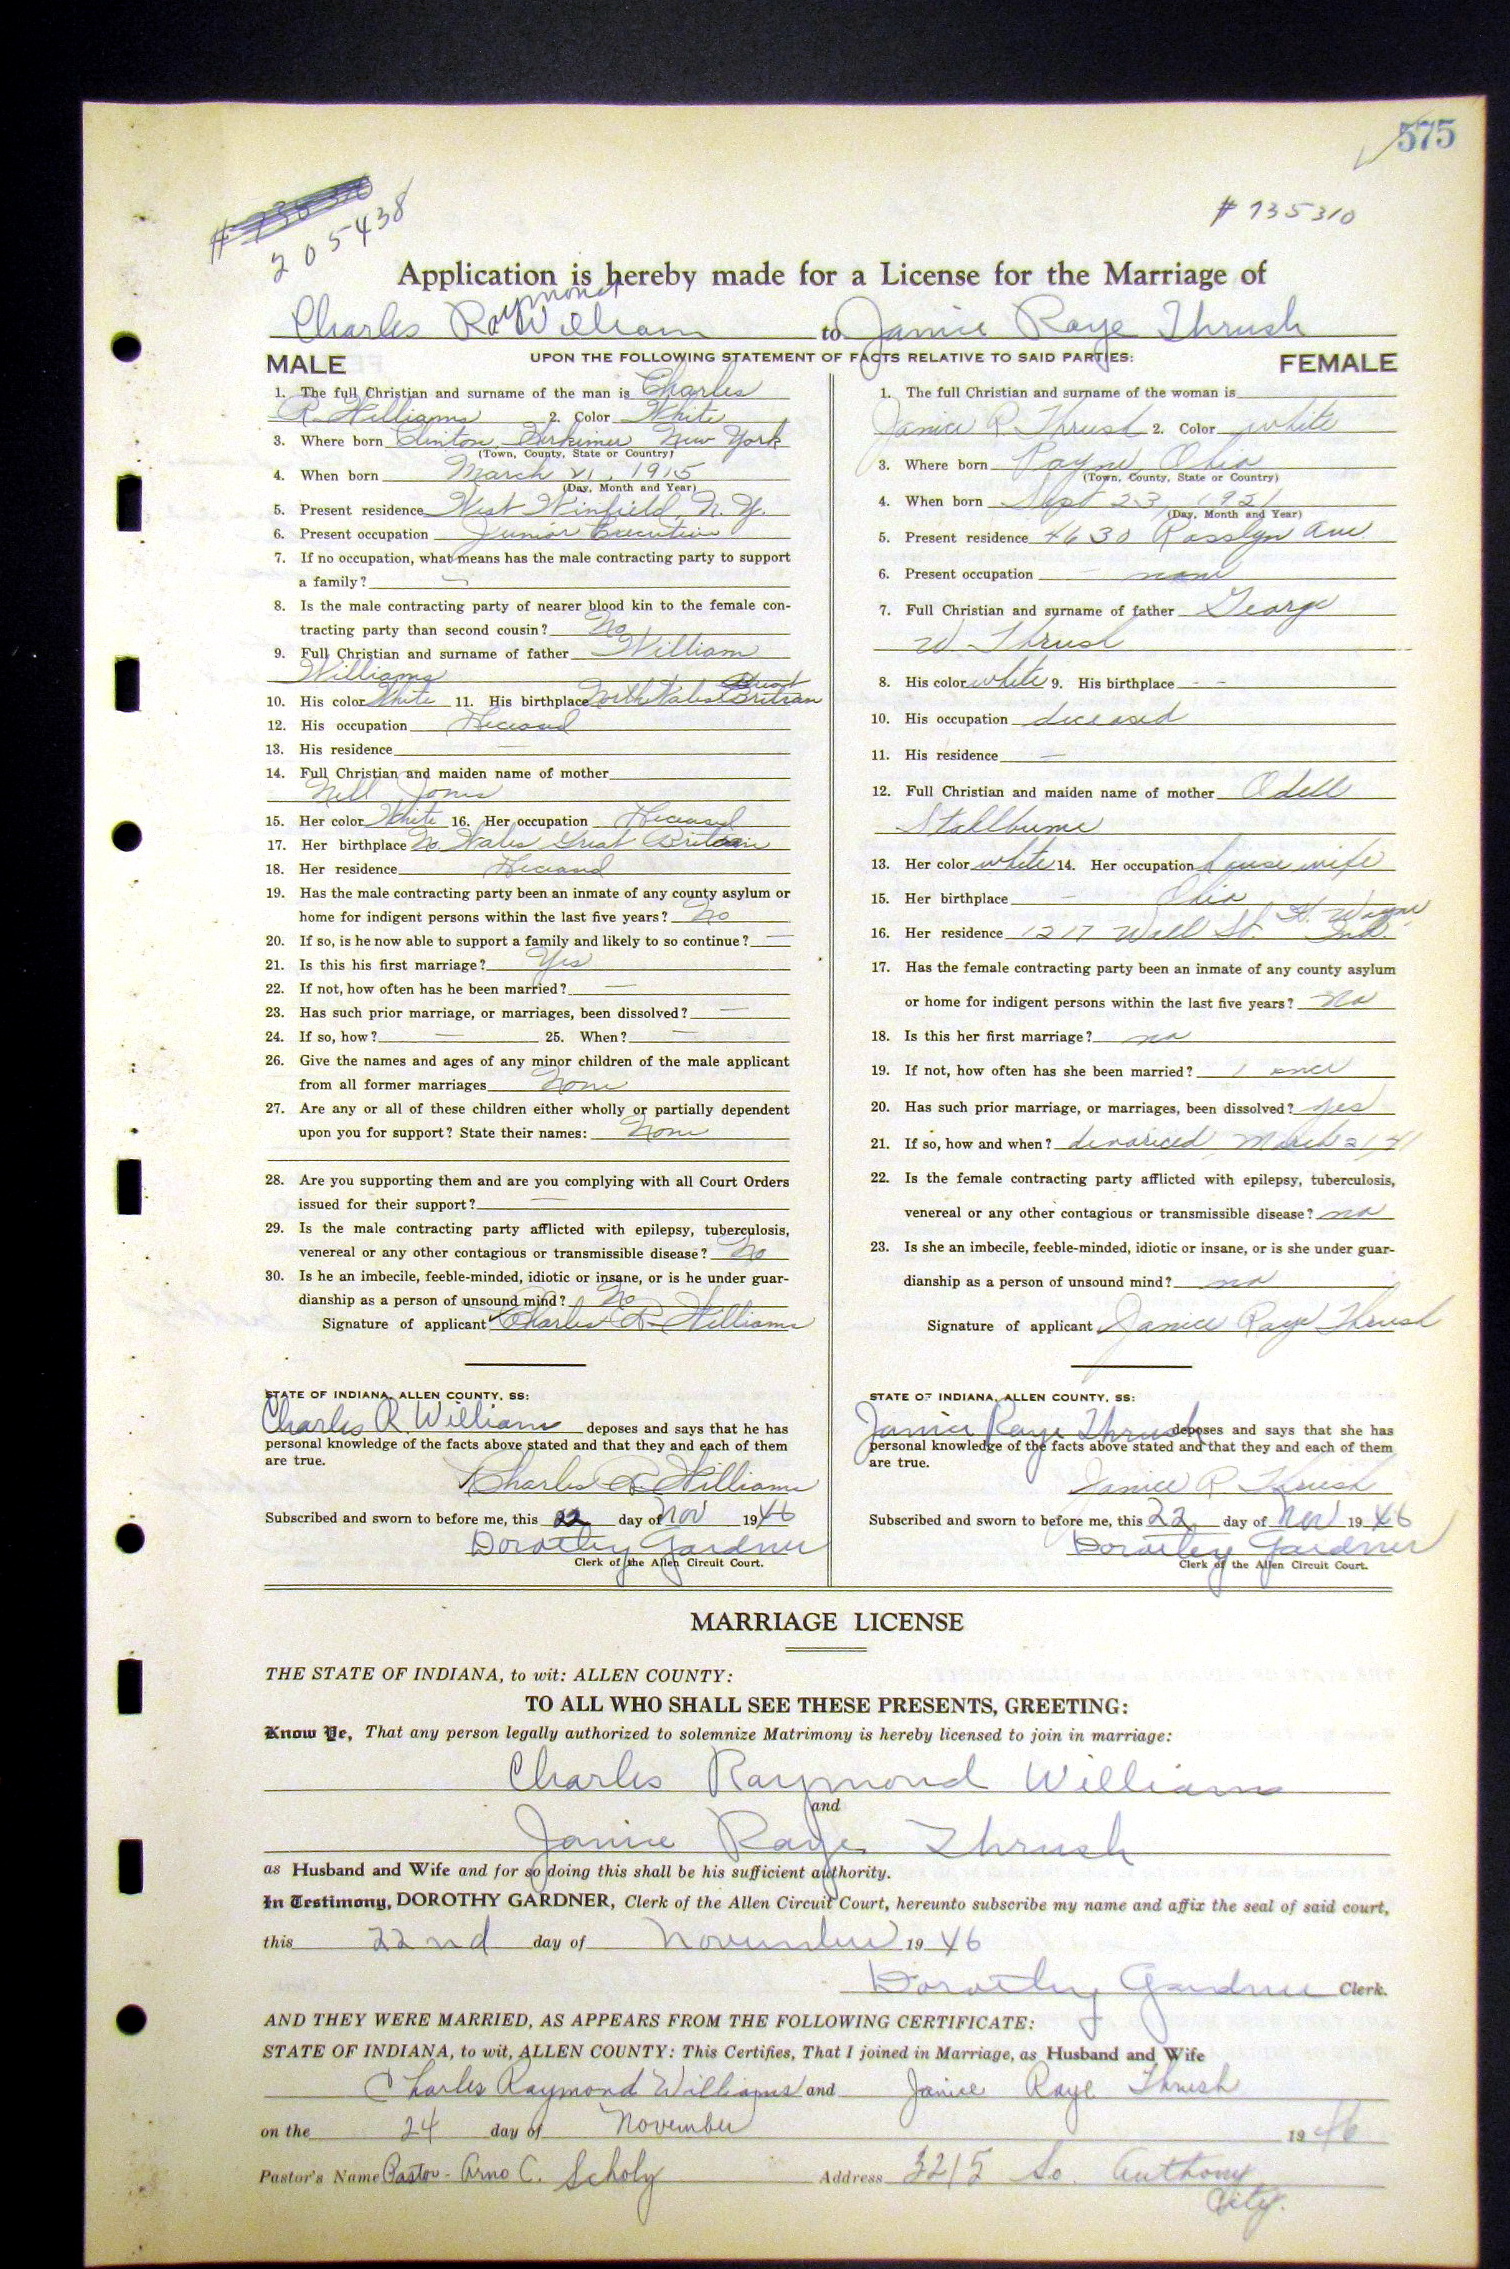 575
# 735310
205438
Application is hereby made for a License for the Marriage of
Raymond
Charles Ray William to Janice Raye Thrush
MALE UPON THE FOLLOWING STATEMENT OF FACTS RELATIVE TO SAID PARTIES: FEMALE
1. The full Christian and surname of the man is Charles
R. Williams 2. Color White
3. Where born Clinton Herkimer New York
(Town, County, State or Country)
4. When born March 21, 1915
(Day, Month and Year)
5. Present residence West Winfield, N. Y.
6. Present occupation Junior Executive
7. If no occupation, what means has the male contracting party to support
a family? —
8. Is the male contracting party of nearer blood kin to the female con-
tracting party than second cousin? No
9. Full Christian and surname of father William
Williams
10. His color White 11. His birthplace North Wales Great Britian
12. His occupation Deceased
13. His residence —
14. Full Christian and maiden name of mother
Nell Jones
15. Her color White 16. Her occupation Deceased
17. Her birthplace No. Wales Great Britain
18. Her residence Deceased
19. Has the male contracting party been an inmate of any county asylum or
home for indigent persons within the last five years? No
20. If so, is he now able to support a family and likely to so continue? —
21. Is this his first marriage? Yes
22. If not, how often has he been married? —
23. Has such prior marriage, or marriages, been dissolved? —
24. If so, how? — 25. When? —
26. Give the names and ages of any minor children of the male applicant
from all former marriages None
27. Are any or all of these children either wholly or partially dependent
upon you for support? State their names: None
28. Are you supporting them and are you complying with all Court Orders
issued for their support? —
29. Is the male contracting party afflicted with epilepsy, tuberculosis,
venereal or any other contagious or transmissible disease? No
30. Is he an imbecile, feeble-minded, idiotic or insane, or is he under guar-
dianship as a person of unsound mind? No
Signature of applicant Charles R. Williams
STATE OF INDIANA, ALLEN COUNTY, SS:
Charles R. William deposes and says that he has
personal knowledge of the facts above stated and that they and each of them
are true.
Charles R. Williams
Subscribed and sworn to before me, this 22 day of Nov 1946
Dorothy Gardner
Clerk of the Allen Circuit Court.
1. The full Christian and surname of the woman is
Janice R. Thrush 2. Color white
3. Where born Payne Ohio
(Town, County, State or Country)
4. When born Sept 23, 1921
(Day, Month and Year)
5. Present residence 4630 Rosslyn Ave
6. Present occupation none
7. Full Christian and surname of father George
W. Thrush
8. His color white 9. His birthplace - -
10. His occupation deceased
11. His residence —
12. Full Christian and maiden name of mother Odell
13. Her color white 14. Her occupation house wife
15. Her birthplace - Ohio
16. Her residence 1217 Wall St. Ft. Wayne Ind.
17. Has the female contracting party been an inmate of any county asylum
or home for indigent persons within the last five years? No
18. Is this her first marriage? no
19. If not, how often has she been married? 1 once
20. Has such prior marriage, or marriages, been dissolved? yes
21. If so, how and when? devoriced March 21, 41
22. Is the female contracting party afflicted with epilepsy, tuberculosis,
venereal or any other contagious or transmissible disease? no
23. Is she an imbecile, feeble-minded, idiotic or insane, or is she under guar-
dianship as a person of unsound mind? no
Signature of applicant Janice Raye Thrush
STATE OF INDIANA, ALLEN COUNTY, SS:
Janice Raye Thrush deposes and says that she has
personal knowledge of the facts above stated and that they and each of them
are true.
Janice R. Thrush
Subscribed and sworn to before me, this 22 day of Nov 1946
Dorothy Gardner
Clerk of the Allen Circuit Court.
MARRIAGE LICENSE
THE STATE OF INDIANA, to wit: ALLEN COUNTY:
TO ALL WHO SHALL SEE THESE PRESENTS, GREETING:
Know Ye, That any person legally authorized to solemnize Matrimony is hereby licensed to join in marriage:
Charles Raymond Williams
and
Janice Raye Thrush
as Husband and Wife and for so doing this shall be his sufficient authority.
In Testimony, DOROTHY GARDNER, Clerk of the Allen Circuit Court, hereunto subscribe my name and affix the seal of said court,
this 22nd day of November 1946
Dorothy Gardner Clerk.
AND THEY WERE MARRIED, AS APPEARS FROM THE FOLLOWING CERTIFICATE:
STATE OF INDIANA, to wit, ALLEN COUNTY: This Certifies, That I joined in Marriage, as Husband and Wife
Charles Raymond Williams and Janice Raye Thrush
on the 24 day of November 1946
Pastor's Name Pastor - Arno C. Scholz Address 3215 So. Anthony
City.